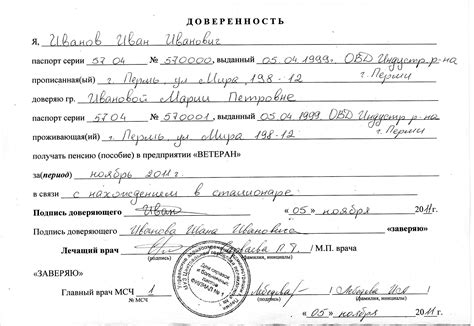 ДОВЕРЕННОСТЬ
Я, Иванов Иван Иванович
паспорт серии 57 04 № 570000, выданный 05.04.1999г. ОВД Индустр. р-на
прописанная(ый) г. Пермь, ул Мира 198-12 г. Перми
доверяю гр. Ивановой Марии Петровне
паспорт серии 5704 № 570001, выданный 05.04.1999 ОВД Индустр р-на
проживающая(ий) г. Пермь, ул. Мира 198-12 г. Перми
получать пенсию (пособие) в предприятии «ВЕТЕРАН»
за(период) ноябрь 2011г.
в связи с нахождением в стационаре
Подпись доверяющего Иван «05» ноября 2011г.
Подпись доверяющего Иванова Ивана Ивановича «заверяю»
Лечащий врач М.П. врача
(подпись) (фамилия, инициалы)
«ЗАВЕРЯЮ»
Для справок и больничных листов
ФИЛИАЛ № 1
Главный врач МСЧ 1 Лебедева
№ МСЧ (подпись) (фамилия, инициалы)
«05» ноября 2011г.